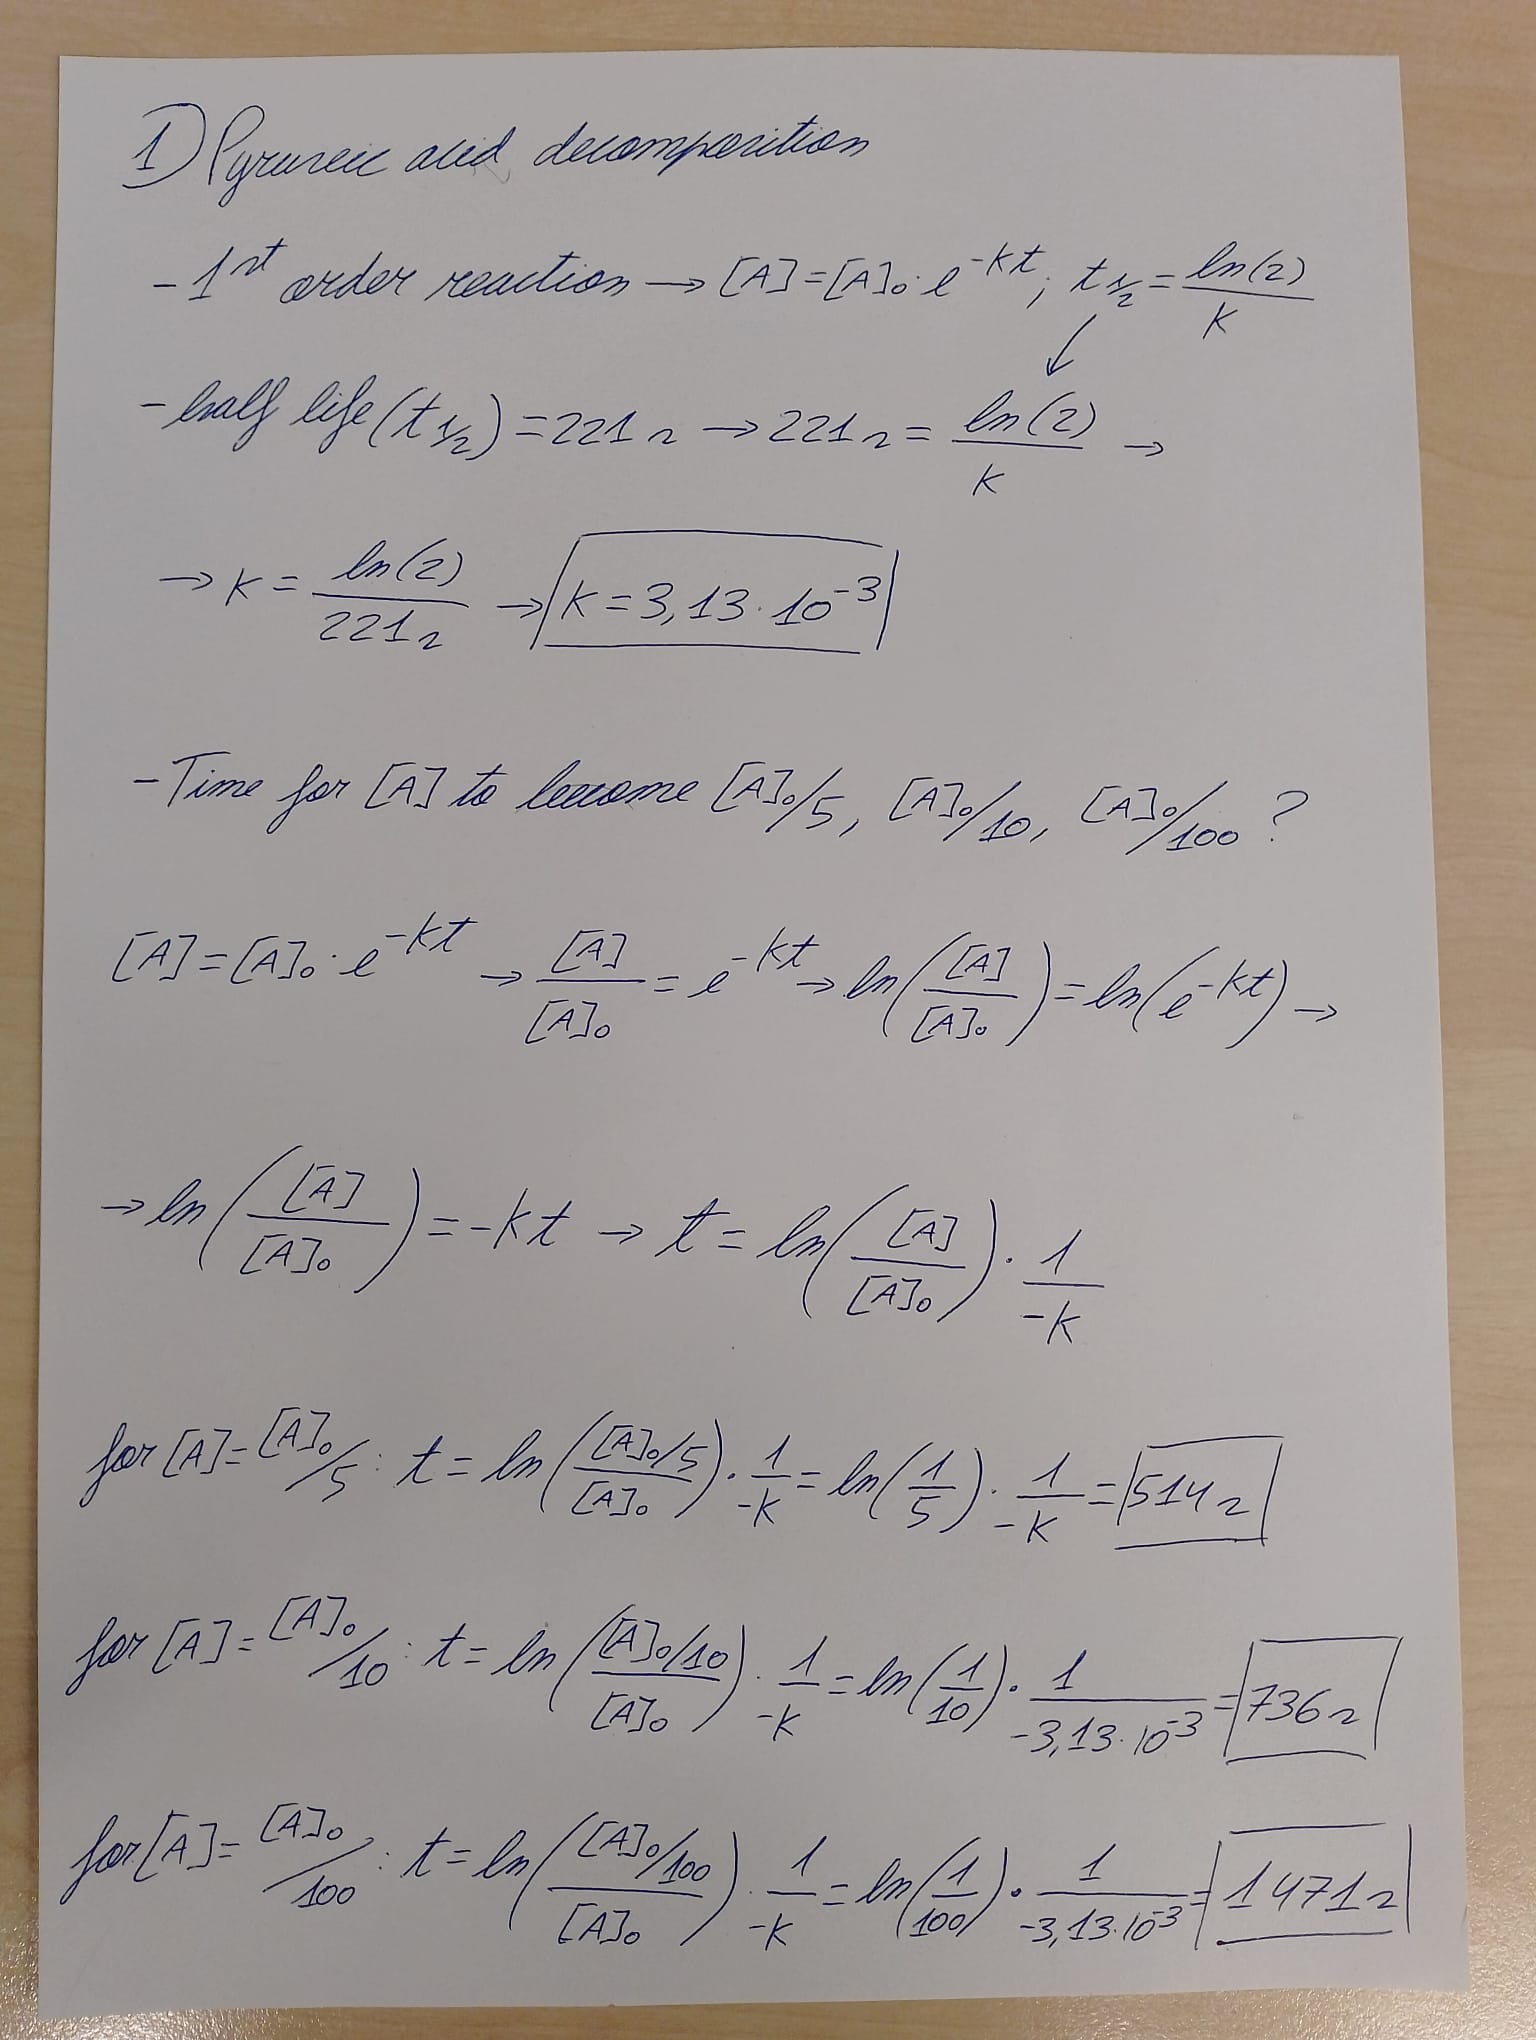 1) Pyruvic acid decomposition
- 1st order reaction → [A] = [A]₀ · e^(-kt) ; t½ = ln(2)/k
- half life (t½) = 221 s → 221 s = ln(2)/k →
→ k = ln(2)/221 s → k = 3,13 · 10⁻³
- Time for [A] to become [A]₀/5, [A]₀/10, [A]₀/100 ?
[A] = [A]₀ · e^(-kt) → [A]/[A]₀ = e^(-kt) → ln([A]/[A]₀) = ln(e^(-kt)) →
→ ln([A]/[A]₀) = -kt → t = ln([A]/[A]₀) · 1/-k
for [A] = [A]₀/5 : t = ln([A]₀/5/[A]₀) · 1/-k = ln(1/5) · 1/-k = 514 s
for [A] = [A]₀/10 : t = ln([A]₀/10/[A]₀) · 1/-k = ln(1/10) · 1/-3,13 · 10⁻³ = 736 s
for [A] = [A]₀/100 : t = ln([A]₀/100/[A]₀) · 1/-k = ln(1/100) · 1/-3,13 · 10⁻³ = 1471 s